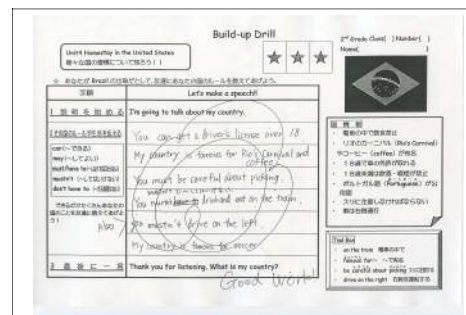 Build-up Drill
Unit4 Homestay in the United States
様々な国の習慣について知ろう！！
2nd Grade Class( ) Number( )
Name( )
☆ あなたが Brazil の出身だとして、友達にあなたの国のルールを教えてあげよう。
手順
Let's make a speech!!
1 説明を始める
I'm going to talk about my country.
You can get a driver's license over 18
My country is famous for Rio's Carnival and
coffee.
You must be careful about picking.
You mustn't drink and eat on the train.
Also
you mustn't drive on the left.
My country is famous for soccer
can(～できる)
may(～してよい)
mustn't (～してはいけない)
3 最後に一言
Thank you for listening. What is my country?
Good Work!
・ 電車の中で飲食禁止
・ リオのカーニバル (Rio's Carnival)
やコーヒー (coffee) が有名
・ 18歳で車の免許が取れる
・ 18歳未満は飲酒・喫煙が禁止
・ ポルトガル語 (Portuguese) が公
用語
・ スリに注意しなければならない
・ 車は右側通行
Tool Box
・ on the train 電車の中で
・ famous for～ ～で有名
・ be careful about picking スリに注意する
・ drive on the right 右側を運転する